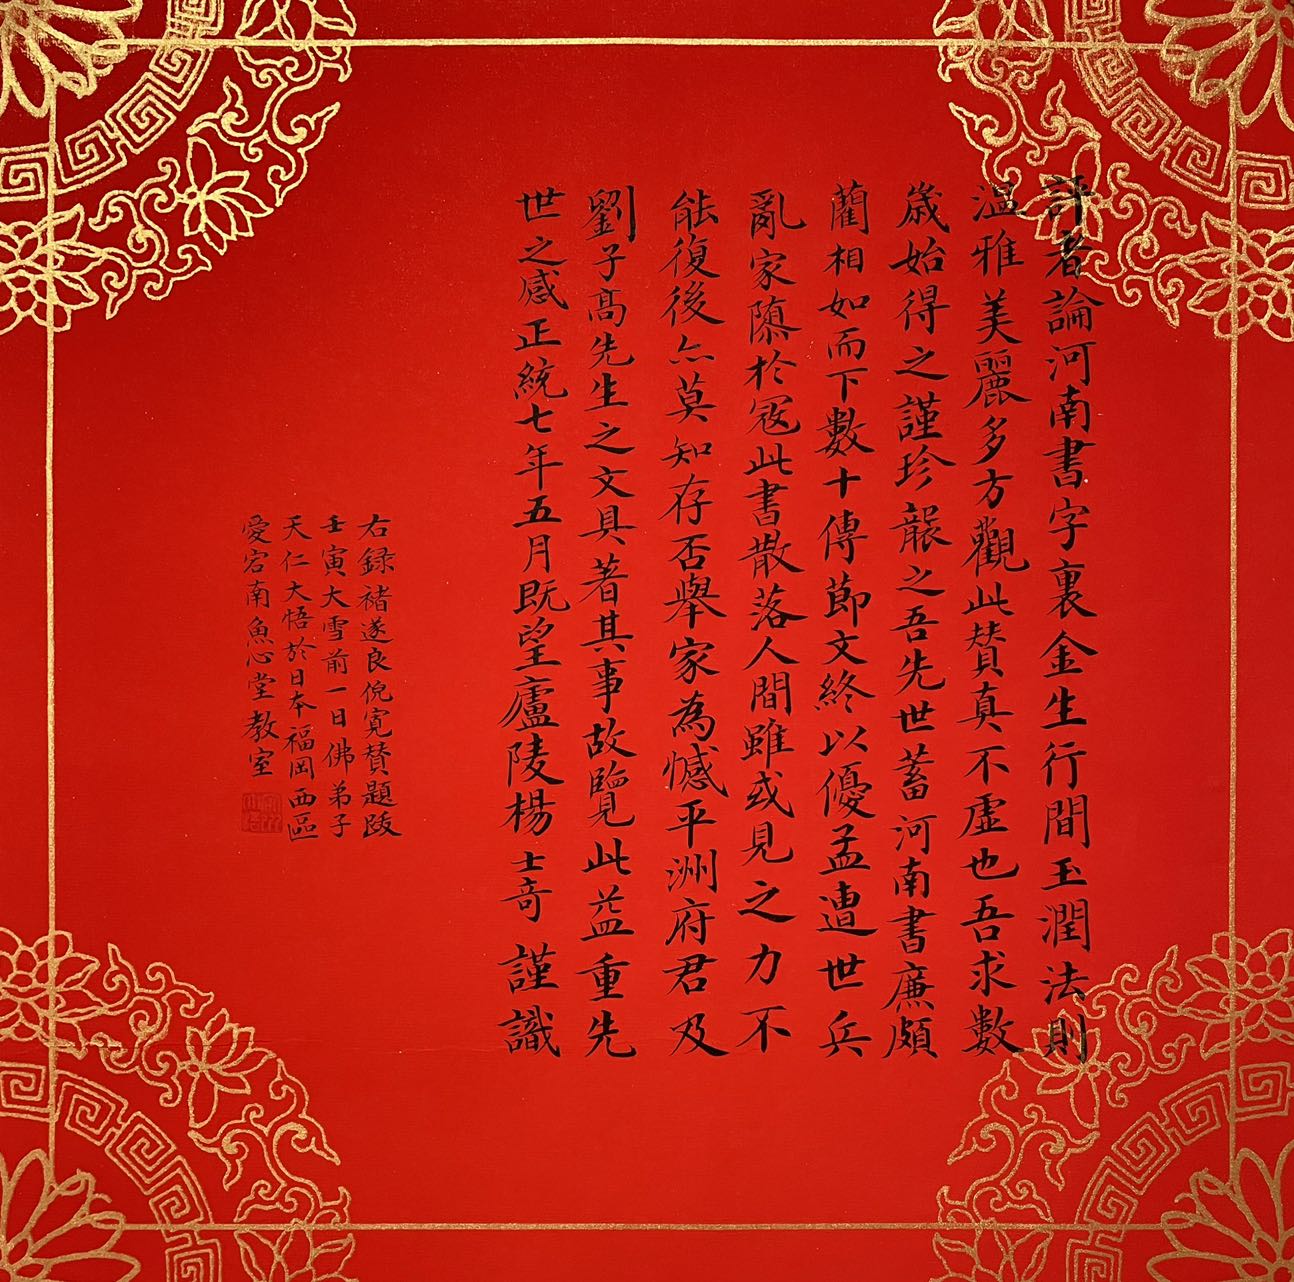 評者論河南書字裏金生行間玉潤法則
溫雅美麗多方觀此贊真不虛也吾求數
歲始得之謹珍襲之吾先世蓄河南書廉頗
藺相如而下數十傳節文終以優孟遭世兵
亂家隳於寇此書散落人間雖或見之力不
能復後亦莫知存否舉家為憾平洲府君及
劉子高先生之文具著其事故覽此益重先
世之感正統七年五月既望廬陵楊士奇謹識
右録褚遂良倪寬贊題跋
壬寅大雪前一日佛弟子
天仁大悟於日本福岡西區
愛宕南魚心堂教室